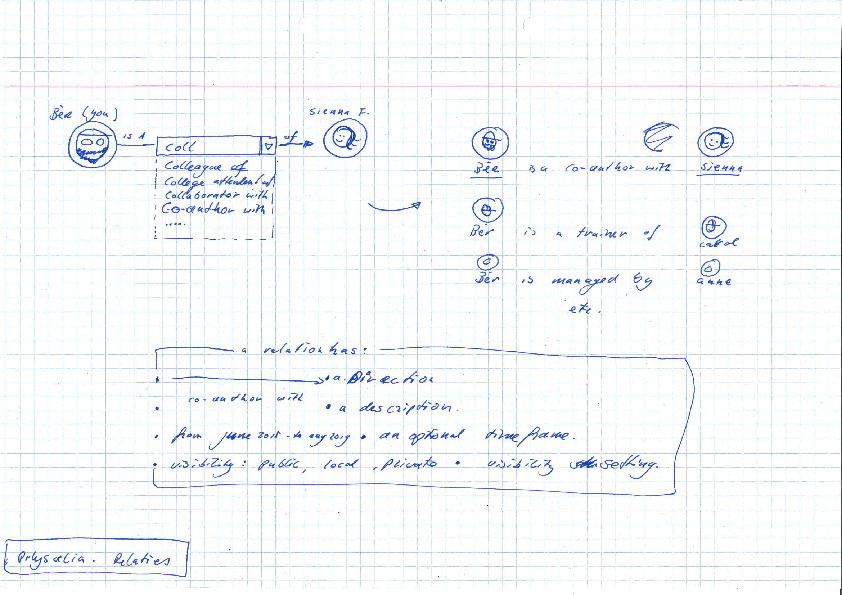 Bèr (you)
is A
coll
of
Sienna F.
Colleague of
College attendent of
Collaborator with
Co-author with
.....
Bèr is a co-author with Sienna
Bèr is a trainer of carol
Bèr is managed by anne
etc.
a relation has:
• a Direction
co-author with • a description.
• from june 2018 - to aug 2019 • an optional timeframe.
• visibility: public, local, private • visibility setting.
Relaties